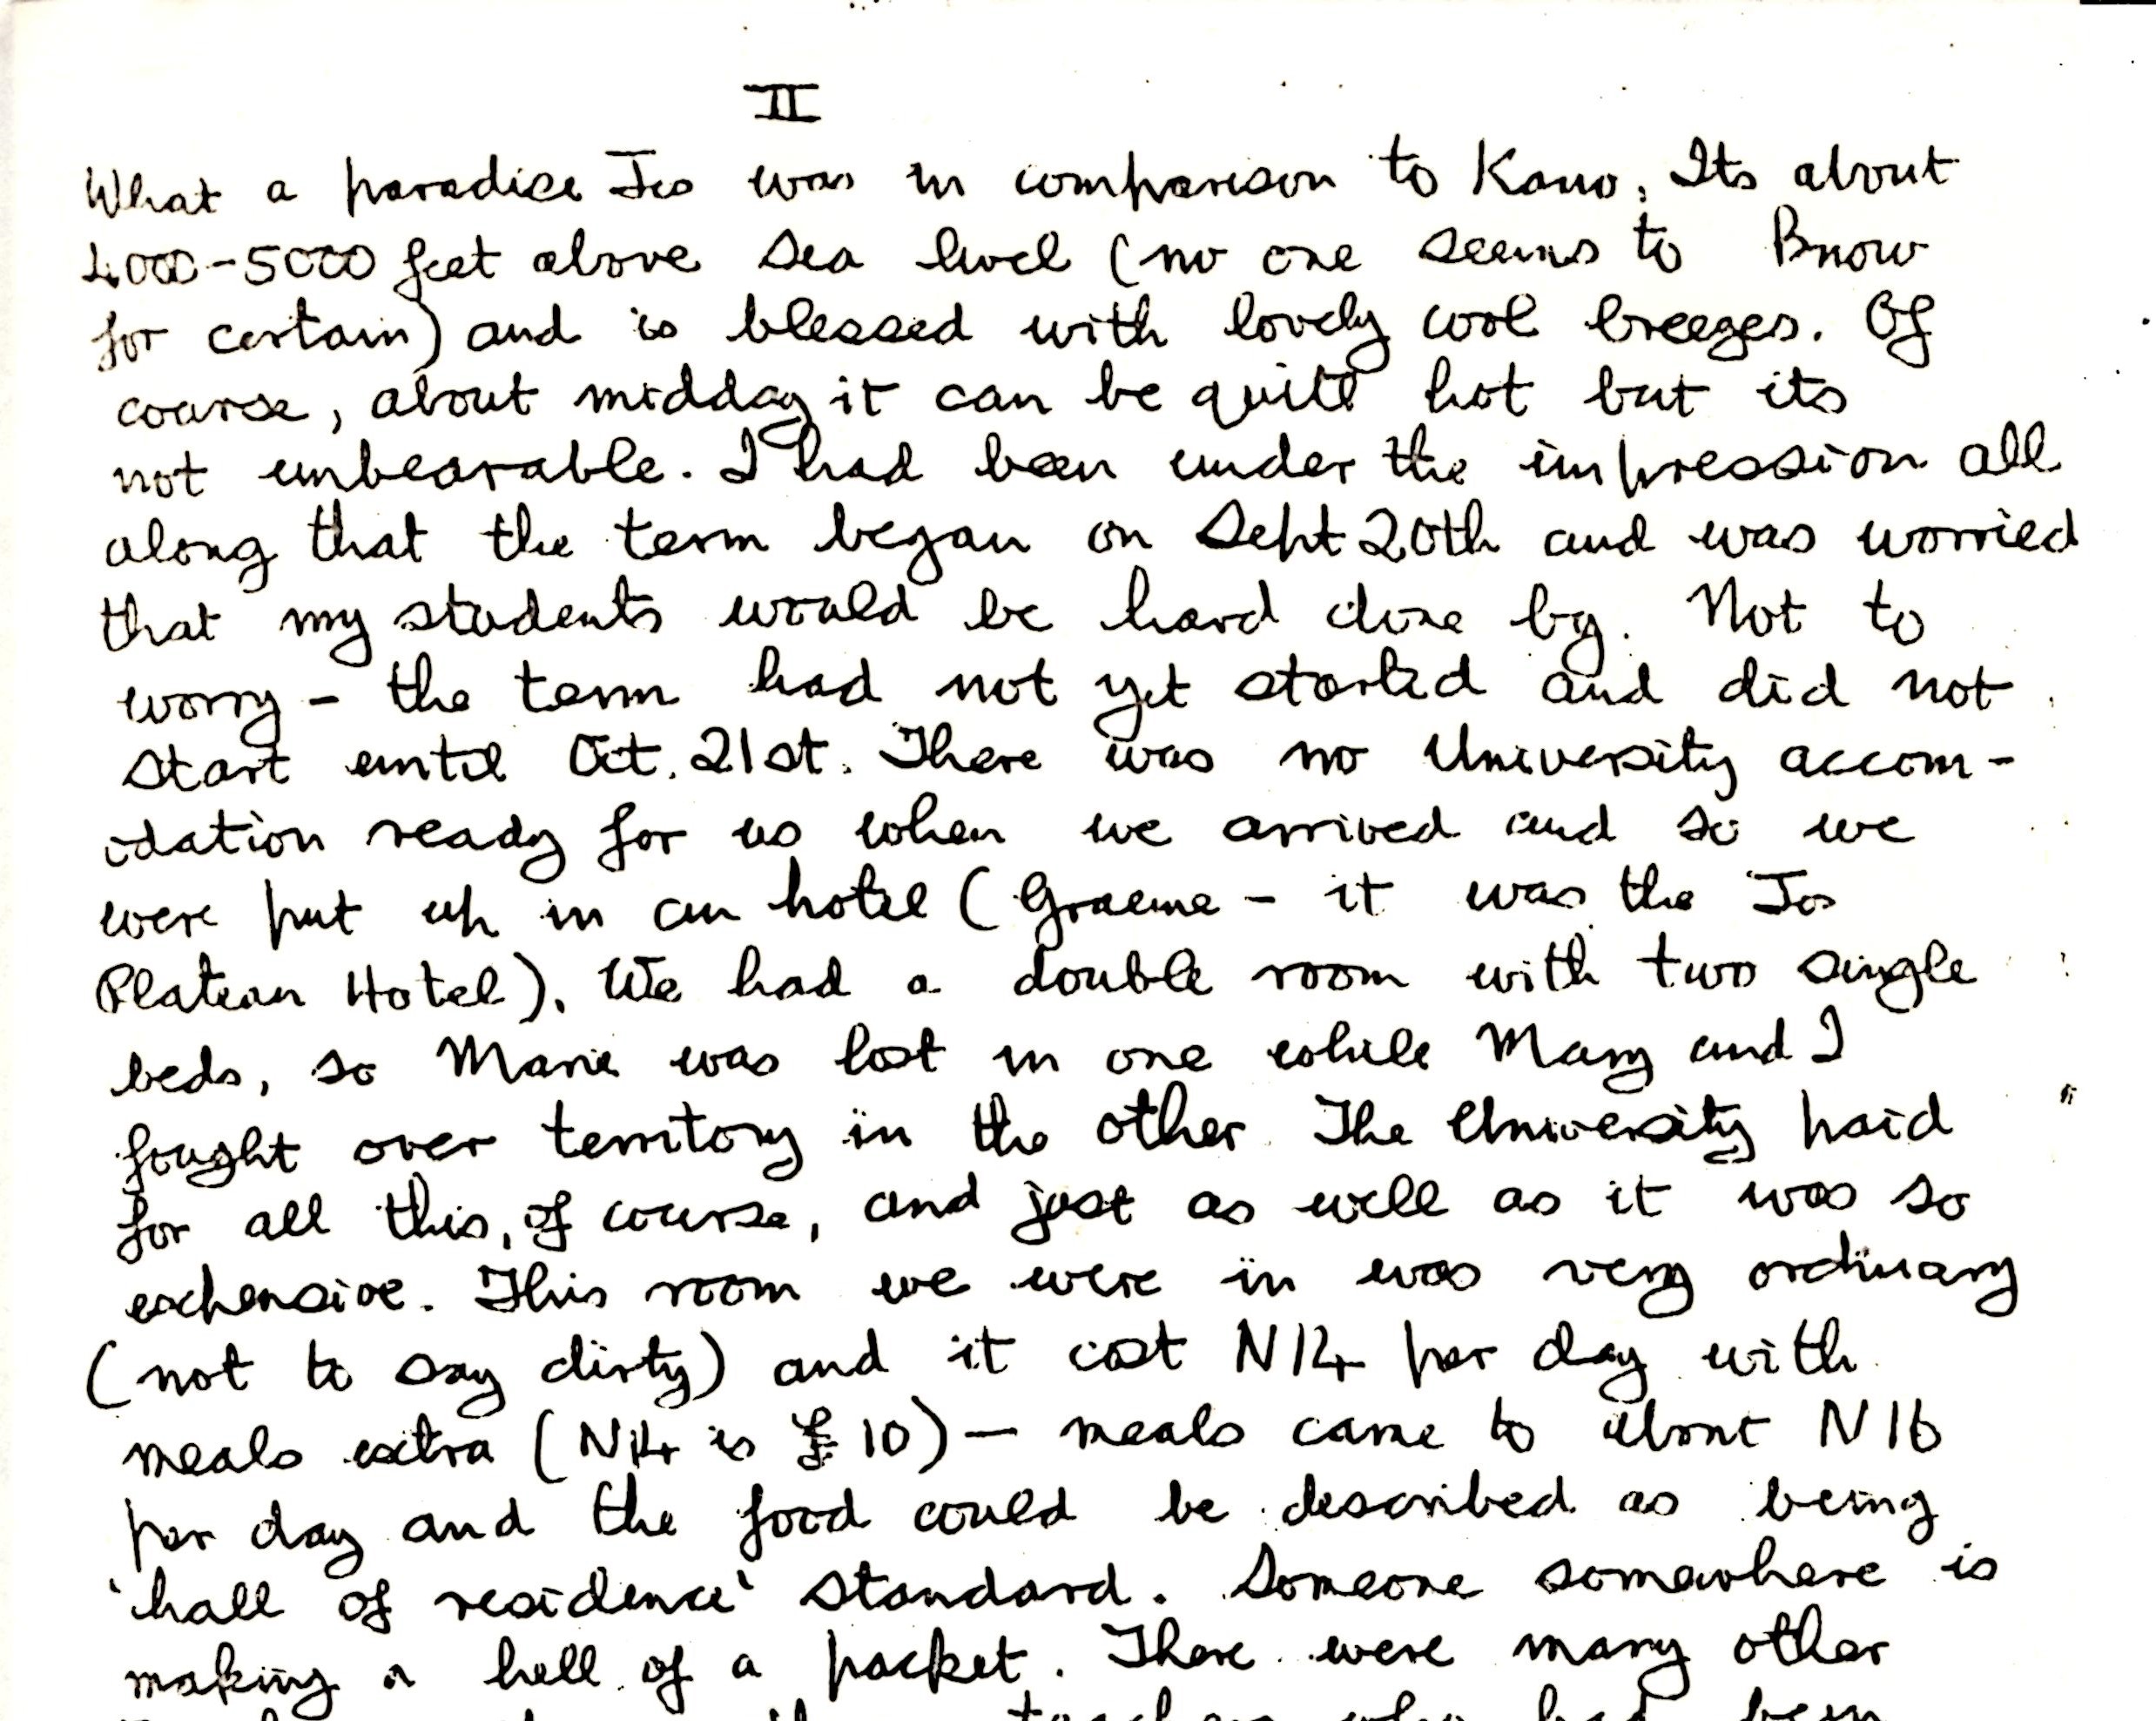 II
What a paradise Jos was in comparison to Kano. Its about
4000-5000 feet above sea level (no one seems to know
for certain) and is blessed with lovely cool breezes. Of
course, about midday it can be quite hot but its
not unbearable. I had been under the impression all
along that the term began on Sept 20th and was worried
that my students would be hard done by. Not to
worry - the term had not yet started and did not
start until Oct. 21st. There was no University accom-
odation ready for us when we arrived and so we
were put up in an hotel (Graeme - it was the Jos
Plateau Hotel). We had a double room with two single
beds, so Marie was lost in one while Mary and I
fought over territory in the other. The University paid
for all this, of course, and just as well as it was so
expensive. This room we were in was very ordinary
(not to say dirty) and it cost N14 per day with
meals extra (N14 is £10) - meals came to about N16
per day and the food could be described as being
'hall of residence' standard. Someone somewhere is
making a hell of a packet. There were many other
teachers who had been